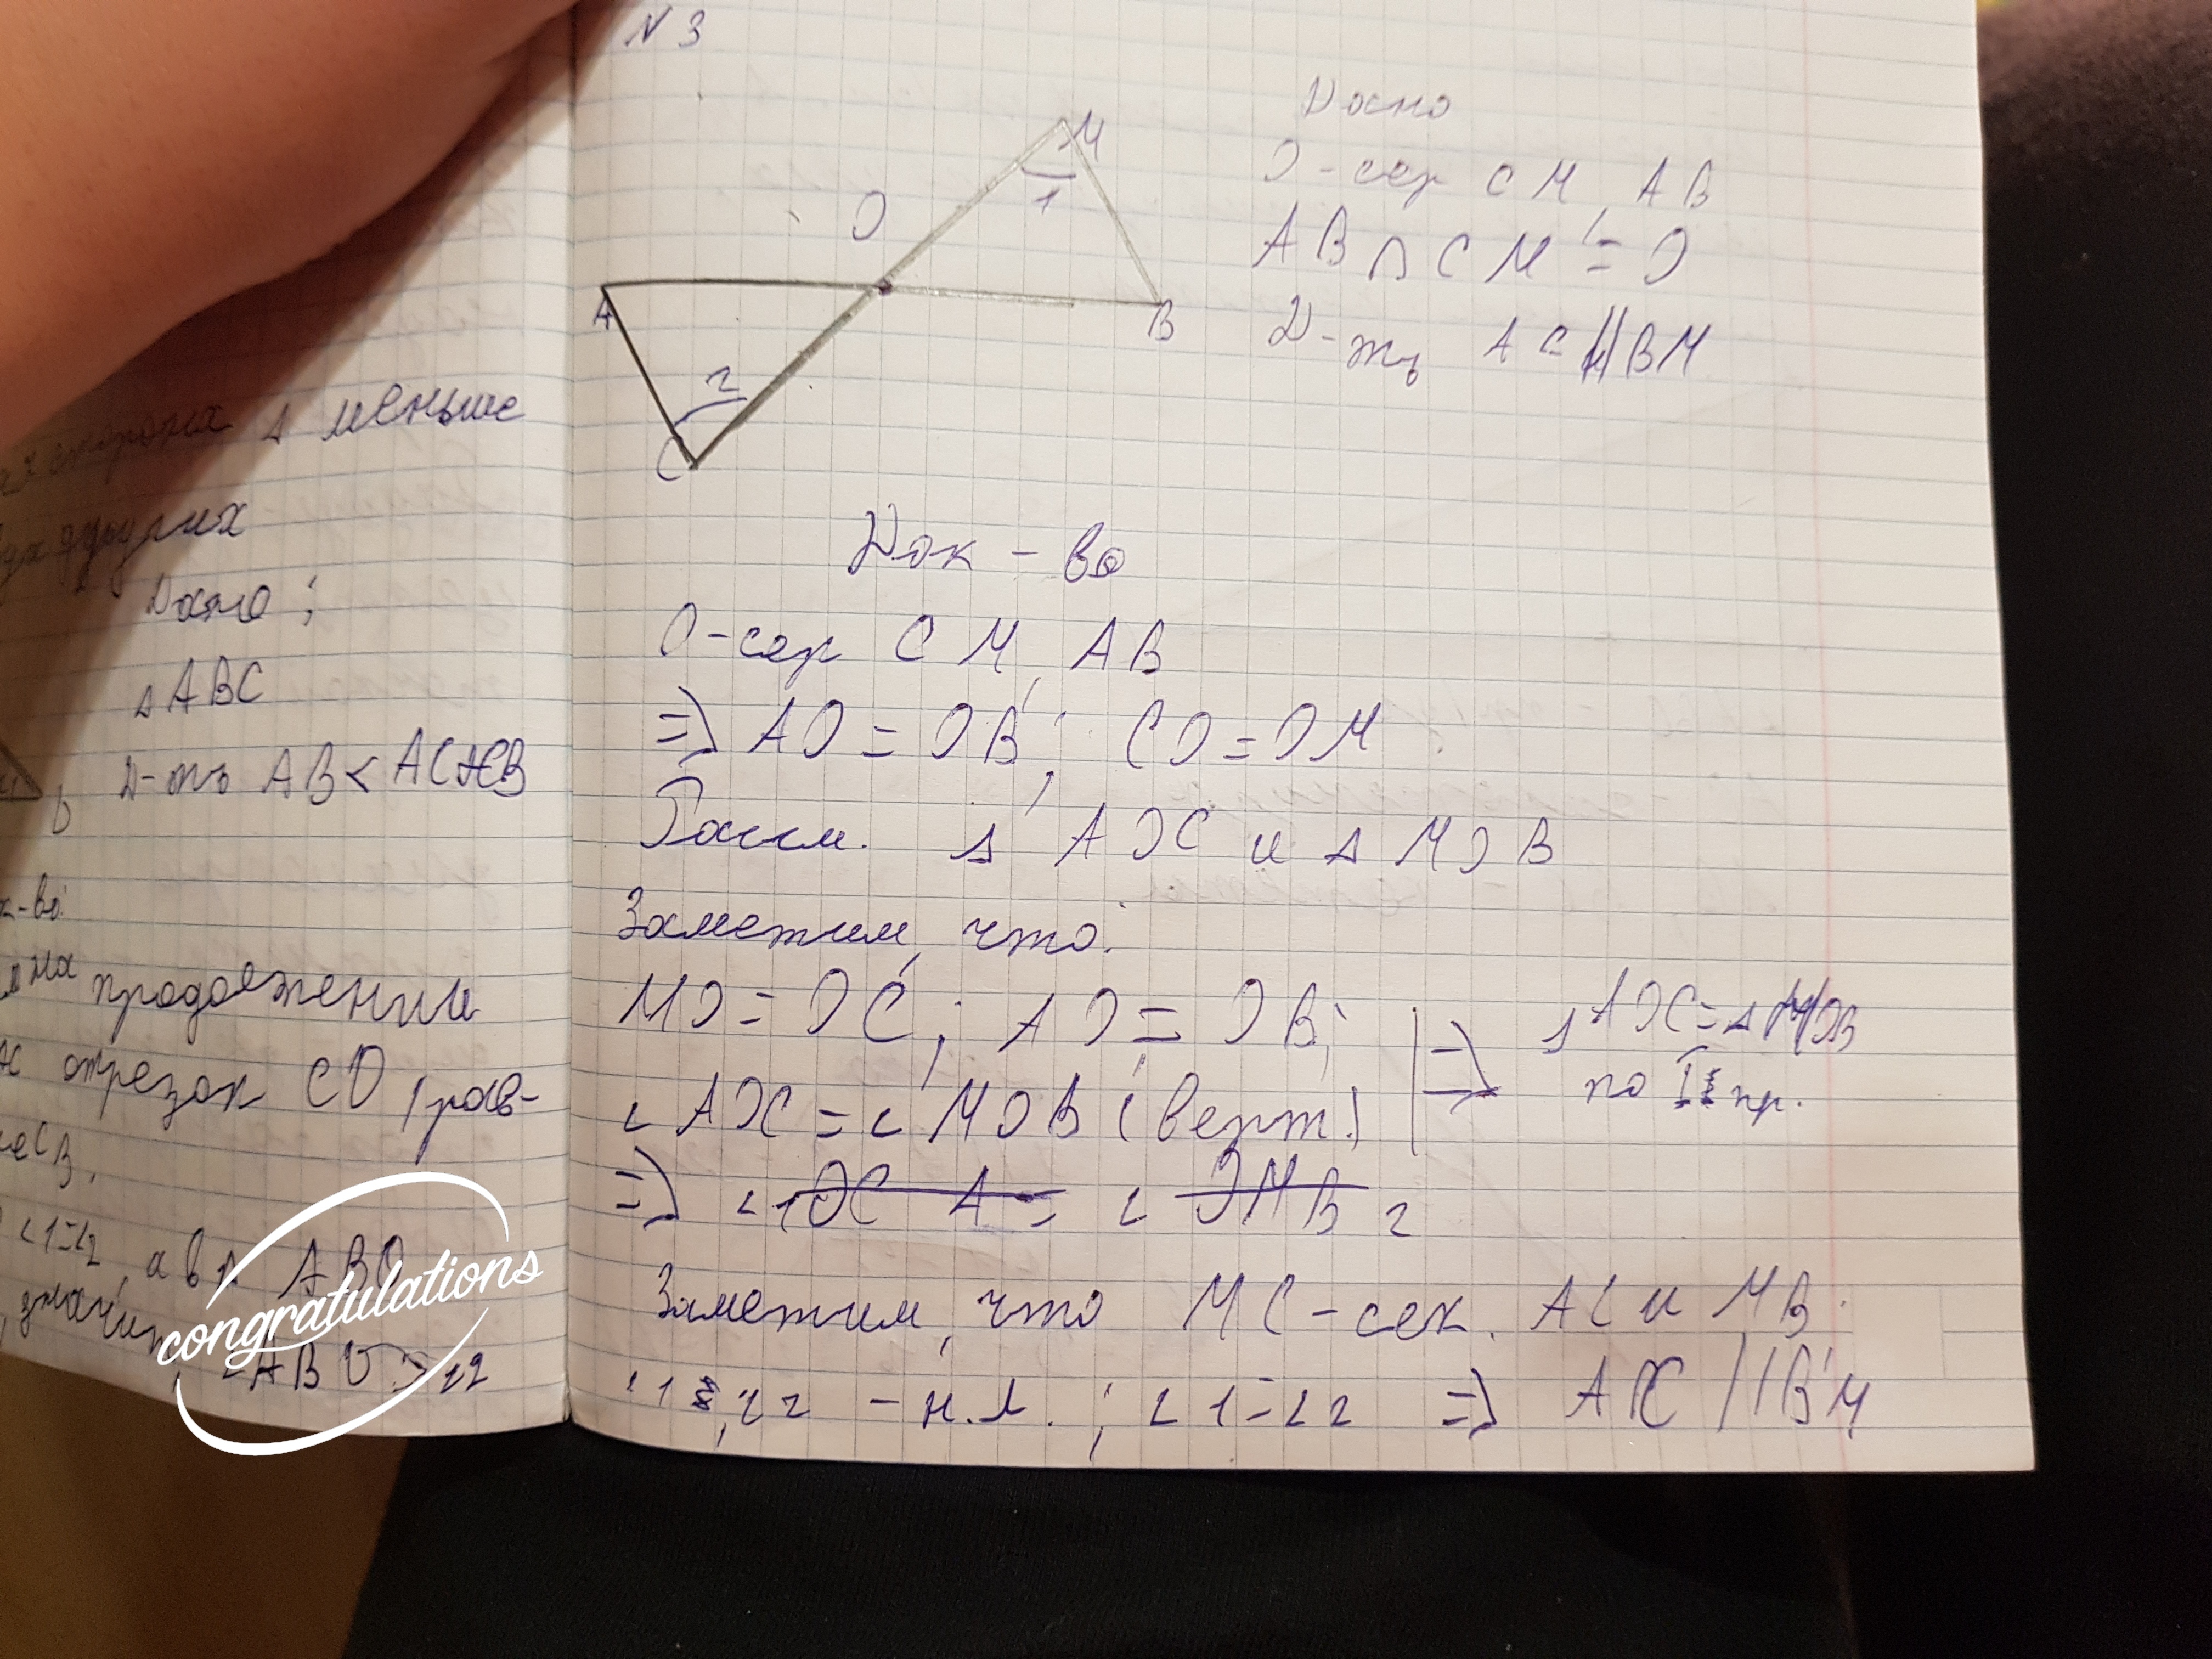 сторона Δ меньше
других
Дано:
Δ ABC
Д-ть AB < AC+CB
B
к-во:
на продолжении
отрезок CD, рав-
CB.
∠1=∠2, а в Δ ABD
значит
∠ABD > ∠2
congratulations
N 3
M
1
O
A
B
2
C
Дано
O - сер CM, AB
AB ∩ CM = O
Д-ть AC || BM
Док-во
O - сер CM, AB
=> AO = OB; CO = OM
Рассм. Δ AOC и Δ MOB
Заметим, что:
MO = OC; AO = OB;
∠AOC = ∠MOB (верт.)
=> Δ AOC = Δ MOB
по I пр.
=> ∠1 OCA = ∠ OMB 2
Заметим, что MC - сек. AC и MB.
∠1, ∠2 - н.л.; ∠1=∠2 => AC || BM